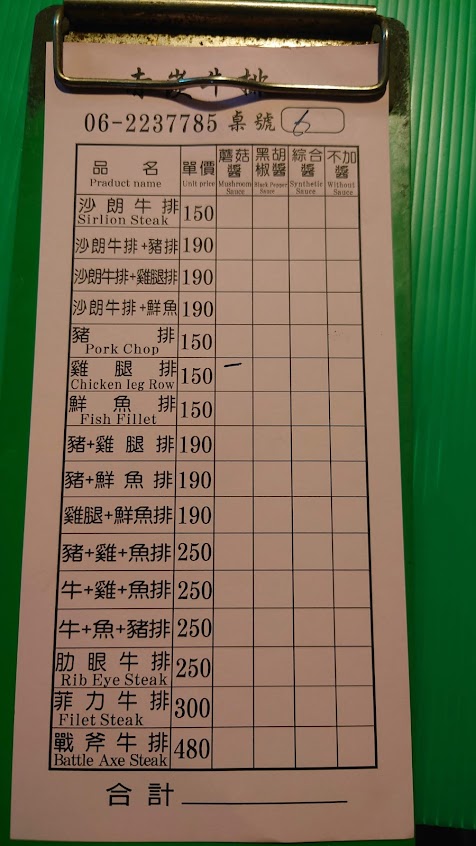 赤崁牛排
06-2237785 桌號 6
品名 單價 蘑菇醬 黑胡椒醬 綜合醬 不加醬
Praduct name Unit price Mushroom Sauce Black Pepper Sauce Synthetic Sauce Without Sauce
沙朗牛排 150
Sirlion Steak
沙朗牛排+豬排 190
沙朗牛排+雞腿排 190
沙朗牛排+鮮魚 190
豬排 150
Pork Chop
雞腿排 150
Chicken leg Row
鮮魚排 150
Fish Fillet
豬+雞腿排 190
豬+鮮魚排 190
雞腿+鮮魚排 190
豬+雞+魚排 250
牛+雞+魚排 250
牛+魚+豬排 250
肋眼牛排 250
Rib Eye Steak
菲力牛排 300
Filet Steak
戰斧牛排 480
Battle Axe Steak
合計